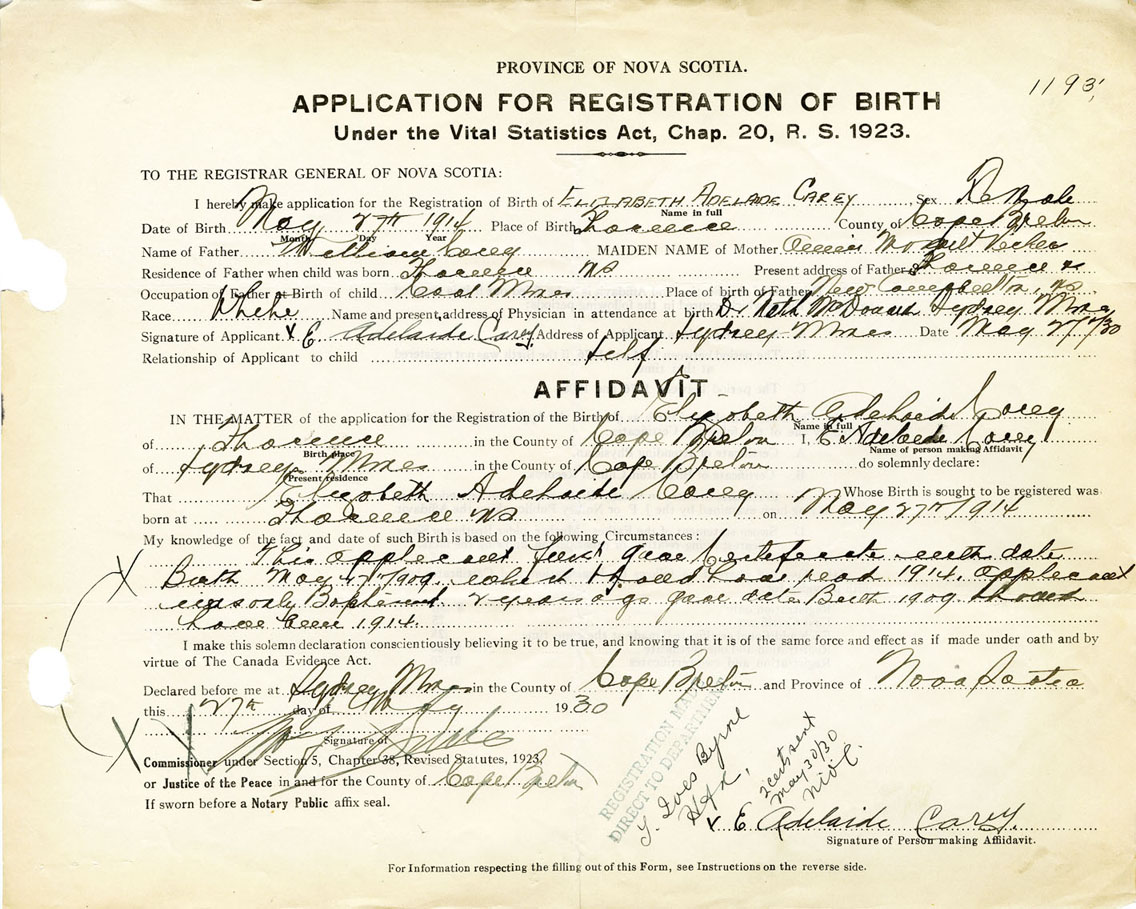 PROVINCE OF NOVA SCOTIA.
1193
APPLICATION FOR REGISTRATION OF BIRTH
Under the Vital Statistics Act, Chap. 20, R. S. 1923.
TO THE REGISTRAR GENERAL OF NOVA SCOTIA:
I hereby make application for the Registration of Birth of ELIZABETH ADELADE CAREY Sex Female
Name in full
Date of Birth May 27th 1914 Place of Birth Florence County of Cape Breton
Month Day Year
Name of Father William Corey MAIDEN NAME of Mother Annie
Residence of Father when child was born Florence NS Present address of Father Florence
Occupation of Father at Birth of child Coal Miner Place of birth of Father New Campbellton, NS
Race White Name and present address of Physician in attendance at birth Dr McDonald Sydney Mines
Signature of Applicant x E. Adelaide Carey Address of Applicant Sydney Mines Date May 27/30
Relationship of Applicant to child self
AFFIDAVIT
IN THE MATTER of the application for the Registration of the Birth of Elizabeth Adelaide Corey
Name in full
of Florence in the County of Cape Breton I, E Adelaide Corey
Birth place Name of person making Affidavit
of Sydney Mines in the County of Cape Breton do solemnly declare:
Present residence
That Elizabeth Adelaide Corey Whose Birth is sought to be registered was
born at Florence NS on May 27th 1914
My knowledge of the fact and date of such Birth is based on the following Circumstances:
This applicant first gave Certificate with date
X Birth May 27th 1909. when it should have read 1914. applicant
was only Baptised 2 years ago gave date Birth 1909 should
have been 1914
I make this solemn declaration conscientiously believing it to be true, and knowing that it is of the same force and effect as if made under oath and by
virtue of The Canada Evidence Act.
Declared before me at Sydney Mines in the County of Cape Breton and Province of Nova Scotia
this 27th day of May 1930
Signature of
X X Commissioner under Section 5, Chapter 38, Revised Statutes, 1923.
or Justice of the Peace in and for the County of Cape Breton
If sworn before a Notary Public affix seal.
REGISTRATION
DIRECT TO DEPARTMENT
Ives Byrne
Hfx,
2 cert sent
May 30/30
x E Adelaide Carey.
Signature of Person making Affidavit.
For Information respecting the filling out of this Form, see Instructions on the reverse side.